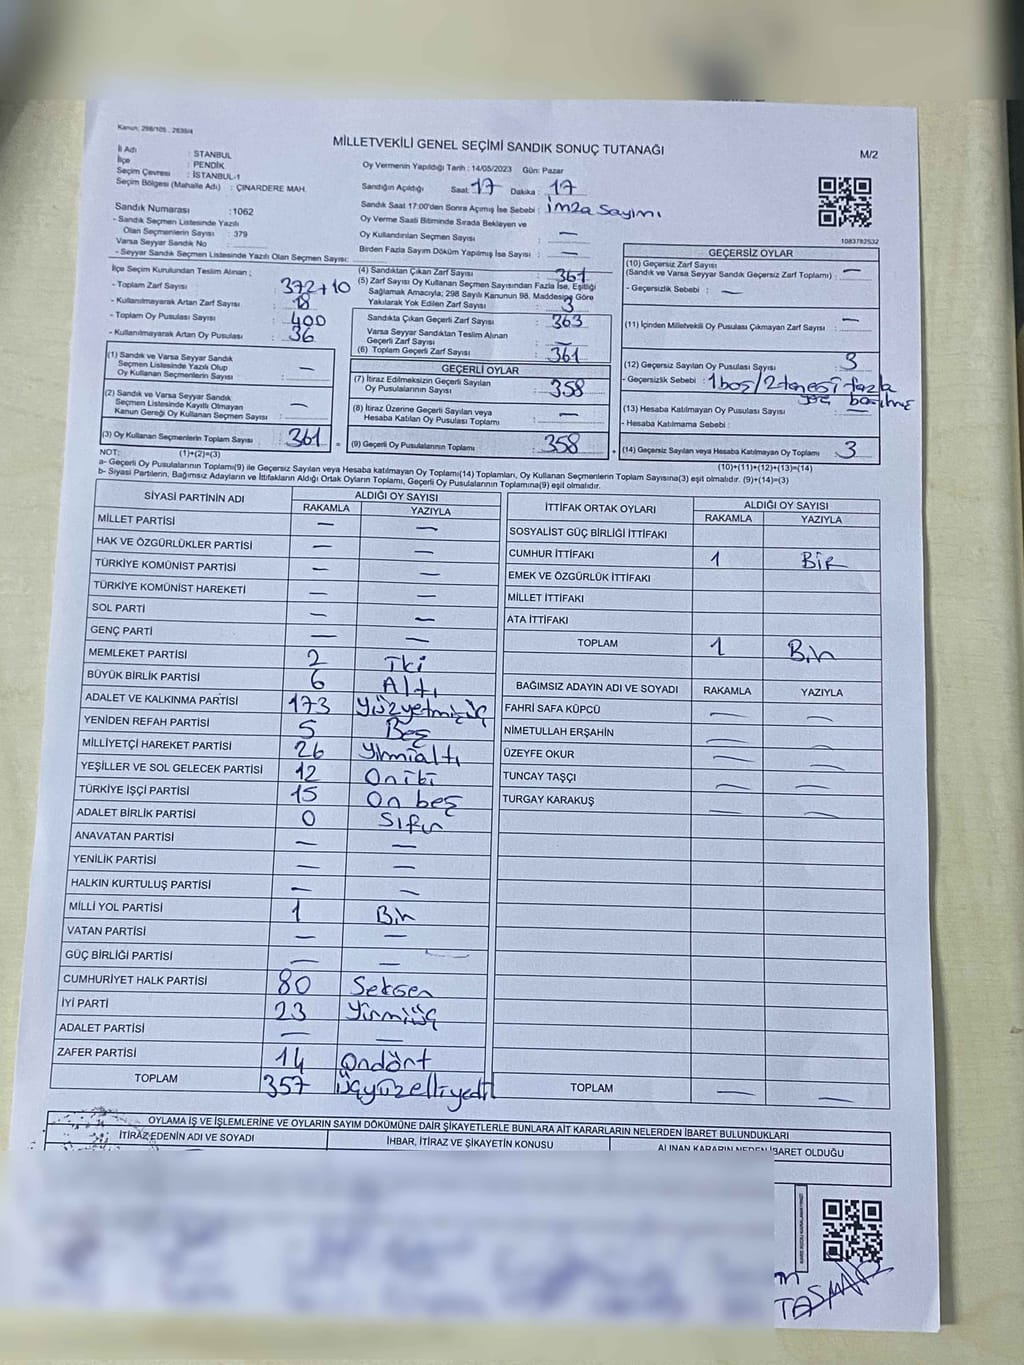 Kanun: 298/105 , 2839/4
MİLLETVEKİLİ GENEL SEÇİMİ SANDIK SONUÇ TUTANAĞI
M/2
İl Adı : STANBUL
İlçe : PENDİK
Seçim Çevresi : İSTANBUL-1
Seçim Bölgesi (Mahalle Adı) : ÇINARDERE MAH.
Oy Vermenin Yapıldığı Tarih : 14/05/2023 Gün: Pazar
Sandığın Açıldığı Saat: 17 Dakika : 17
Sandık Saat 17:00'den Sonra Açmış İse Sebebi : imza sayımı
Oy Verme Saati Bitiminde Sırada Bekleyen ve
Oy Kullandırılan Seçmen Sayısı : —
Birden Fazla Sayım Döküm Yapılmış İse Sayısı : —
Sandık Numarası : 1062
- Sandık Seçmen Listesinde Yazılı
Olan Seçmenlerin Sayısı : 379
Varsa Seyyar Sandık No :
- Seyyar Sandık Seçmen Listesinde Yazılı Olan Seçmen Sayısı:
1083782532
İlçe Seçim Kurulundan Teslim Alınan ;
- Toplam Zarf Sayısı : 372+10
- Kullanılmayarak Artan Zarf Sayısı : 18
- Toplam Oy Pusulası Sayısı : 400
- Kullanılmayarak Artan Oy Pusulası : 36
(1) Sandık ve Varsa Seyyar Sandık
Seçmen Listesinde Yazılı Olup
Oy Kullanan Seçmenlerin Sayısı : —
(2) Sandık ve Varsa Seyyar Sandık
Seçmen Listesinde Kayıtlı Olmayan
Kanun Gereği Oy Kullanan Seçmen Sayısı : —
(3) Oy Kullanan Seçmenlerin Toplam Sayısı : 361
(1)+(2)=(3)
(4) Sandıktan Çıkan Zarf Sayısı : 361
(5) Zarf Sayısı Oy Kullanan Seçmen Sayısından Fazla İse, Eşitliği
Sağlamak Amacıyla; 298 Sayılı Kanunun 98. Maddesine Göre
Yakılarak Yok Edilen Zarf Sayısı : 3
Sandıkta Çıkan Geçerli Zarf Sayısı : 363
Varsa Seyyar Sandıktan Teslim Alınan
Geçerli Zarf Sayısı : —
(6) Toplam Geçerli Zarf Sayısı : 361
GEÇERLİ OYLAR
(7) İtiraz Edilmeksizin Geçerli Sayılan
Oy Pusulalarının Sayısı : 358
(8) İtiraz Üzerine Geçerli Sayılan veya
Hesaba Katılan Oy Pusulası Toplamı : —
= (9) Geçerli Oy Pusulalarının Toplamı : 358
GEÇERSİZ OYLAR
(10) Geçersiz Zarf Sayısı
(Sandık ve Varsa Seyyar Sandık Geçersiz Zarf Toplamı) : —
- Geçersizlik Sebebi : —
(11) İçinden Milletvekili Oy Pusulası Çıkmayan Zarf Sayısı : —
(12) Geçersiz Sayılan Oy Pusulası Sayısı : 3
- Geçersizlik Sebebi : 1 boş/2 tanesi fazla
basılmış
(13) Hesaba Katılmayan Oy Pusulası Sayısı : —
- Hesaba Katılmama Sebebi :
+ (14) Geçersiz Sayılan veya Hesaba Katılmayan Oy Toplamı : 3
(10)+(11)+(12)+(13)=(14)
NOT:
a- Geçerli Oy Pusulalarının Toplamı(9) ile Geçersiz Sayılan veya Hesaba katılmayan Oy Toplamı(14) Toplamları, Oy Kullanan Seçmenlerin Toplam Sayısına(3) eşit olmalıdır. (9)+(14)=(3)
b- Siyasi Partilerin, Bağımsız Adayların ve İttifakların Aldığı Ortak Oyların Toplamı, Geçerli Oy Pusulalarının Toplamına(9) eşit olmalıdır.
SİYASİ PARTİNİN ADI ALDIĞI OY SAYISI
RAKAMLA YAZIYLA
MİLLET PARTİSİ — —
HAK VE ÖZGÜRLÜKLER PARTİSİ — —
TÜRKİYE KOMÜNİST PARTİSİ — —
TÜRKİYE KOMÜNİST HAREKETİ — —
SOL PARTİ — —
GENÇ PARTİ — —
MEMLEKET PARTİSİ 2 İki
BÜYÜK BİRLİK PARTİSİ 6 Altı
ADALET VE KALKINMA PARTİSİ 173 Yüzyetmişüç
YENİDEN REFAH PARTİSİ 5 Beş
MİLLİYETÇİ HAREKET PARTİSİ 26 Yirmialtı
YEŞİLLER VE SOL GELECEK PARTİSİ 12 Oniki
TÜRKİYE İŞÇİ PARTİSİ 15 On beş
ADALET BİRLİK PARTİSİ 0 Sıfır
ANAVATAN PARTİSİ — —
YENİLİK PARTİSİ — —
HALKIN KURTULUŞ PARTİSİ — —
MİLLİ YOL PARTİSİ 1 Bir
VATAN PARTİSİ — —
GÜÇ BİRLİĞİ PARTİSİ — —
CUMHURİYET HALK PARTİSİ 80 Seksen
İYİ PARTİ 23 Yirmiüç
ADALET PARTİSİ — —
ZAFER PARTİSİ 14 Ondört
TOPLAM 357 Üçyüzelliyedi
İTTİFAK ORTAK OYLARI ALDIĞI OY SAYISI
RAKAMLA YAZIYLA
SOSYALİST GÜÇ BİRLİĞİ İTTİFAKI
CUMHUR İTTİFAKI 1 Bir
EMEK VE ÖZGÜRLÜK İTTİFAKI
MİLLET İTTİFAKI
ATA İTTİFAKI
TOPLAM 1 Bir
BAĞIMSIZ ADAYIN ADI VE SOYADI RAKAMLA YAZIYLA
FAHRİ SAFA KÜPCÜ — —
NİMETULLAH ERŞAHİN — —
ÜZEYFE OKUR — —
TUNCAY TAŞÇI — —
TURGAY KARAKUŞ — —
TOPLAM — —
OYLAMA İŞ VE İŞLEMLERİNE VE OYLARIN SAYIM DÖKÜMÜNE DAİR ŞİKAYETLERLE BUNLARA AİT KARARLARIN NELERDEN İBARET BULUNDUKLARI
İTİRAZ EDENİN ADI VE SOYADI İHBAR, İTİRAZ VE ŞİKAYETİN KONUSU ALINAN KARARIN NEDEN İBARET OLDUĞU